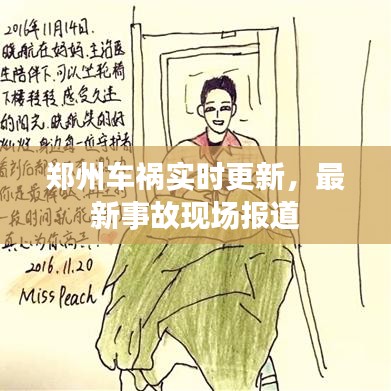 2016年11月14日.
晓航在妈妈.主治医
生陪伴下,可以坐轮椅
下楼转转,感受久违
的阳光.晓航.失的好
身边每一位守护者
看到
你是最棒
一段时间
真心为你高
2016.11.20
Miss Peach
郑州车祸实时更新，最
新事故现场报道